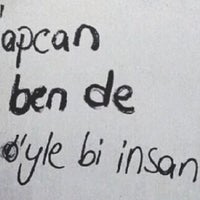 apcan
ben de
öyle bi insan